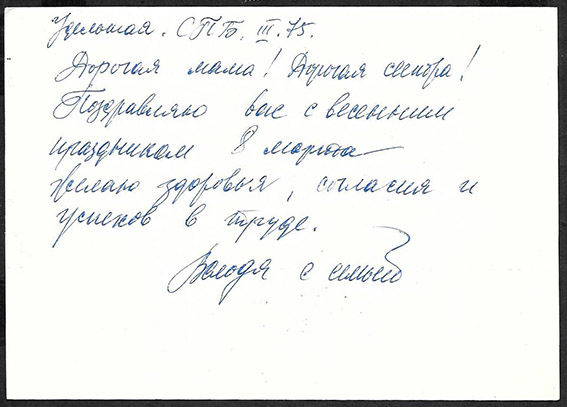 Удельная. СПБ. III. 75.
Дорогая мама! Дорогая сестра!
Поздравляю вас с весенним
праздником 8 марта
желаю здоровья, согласия и
успехов в труде.
Володя с семьей